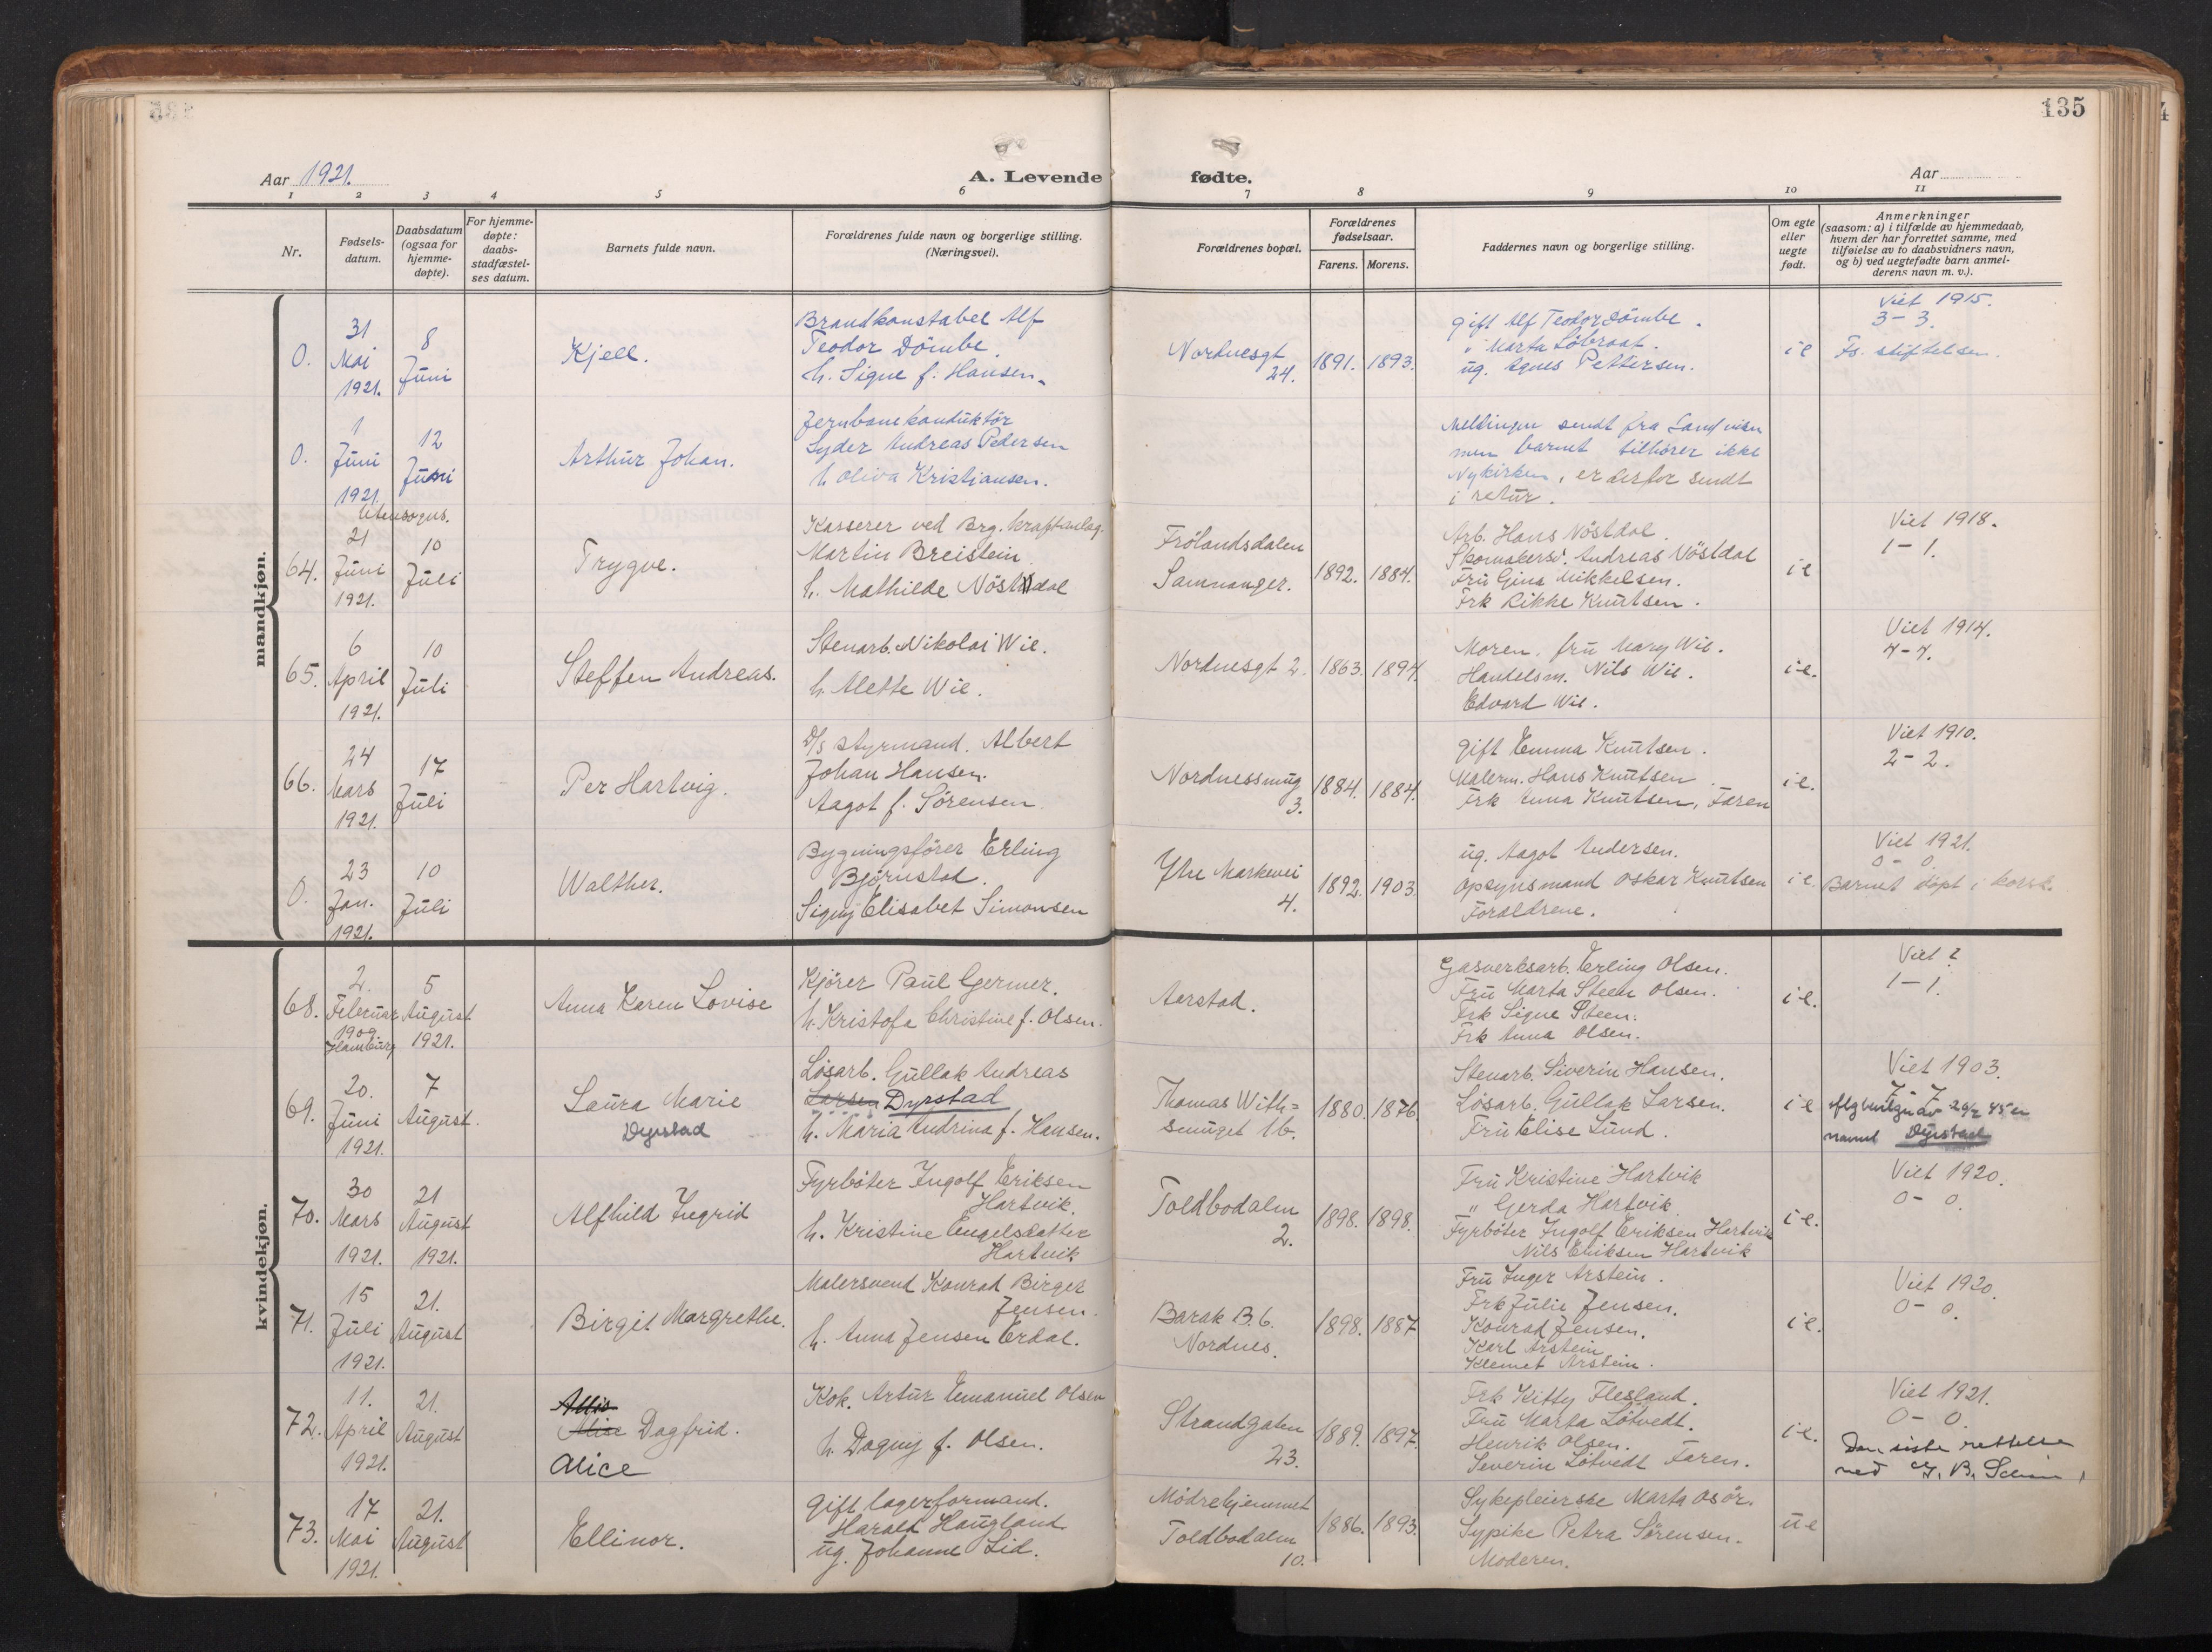 135
Aar 1921.
A. Levende fødte.
Aar
1 2 3 4 5 6 7 8 9 10 11
Nr.
Fødsels-
datum.
Daabsdatum
(ogsaa for
hjemme-
døpte).
For hjemme-
døpte:
daabs-
stadfæstel-
ses datum.
Barnets fulde navn.
Forældrenes fulde navn og borgerlige stilling.
(Næringsvei).
Forældrenes bopæl.
Forældrenes
fødselsaar.
Farens. Morens.
Faddernes navn og borgerlige stilling.
Om egte
eller
uegte
født.
Anmerkninger
(saasom: a) i tilfælde av hjemmedaab,
hvem der har forrettet samme, med
tilføielse av to daabsvidners navn,
og b) ved uegtefødte barn anmel-
derens navn m. v.).
mandkjøn.
0.
31
Mai
1921.
8
Juni
Kjell.
Brandkonstabel Alf
Teodor Dömbe.
h. Signe f. Hansen.
Nordnesgt
24.
1891. 1893.
gift Alf Teodor Dömbe.
" Marta Löbraat.
ug. Agnes Pettersen.
i e
Viet 1915.
3-3.
Fs. stiftelsen.
0.
1
Juni
1921.
12
Juni
Arthur Johan.
Jernbanekonduktör
Lyder Andreas Pedersen
h. Oliva Kristiansen.
Meldingen sendt fra Sandviken
men barnet tilhører ikke
Nykirken, er derfor sendt
i retur.
Utensogns.
64.
21
Juni
1921.
10
Juli
Trygve.
Kasserer ved Brg. kraftanlæg.
Martin Breistein
h. Mathilde Nöstdal
Frölandsdalen
Samnanger.
1892. 1884.
Arb. Hans Nöstdal.
Skomakersv. Andreas Nöstdal
Fru Gina Mikkelsen.
Frk Rikke Knutsen.
i e
Viet 1918.
1-1.
65.
6
April
1921.
10
Juli
Steffen Andreas.
Stenarb. Nikolai Wie.
h. Alette Wie.
Nordnesgt 2.
1863. 1894.
Moren. fru Mary Wie.
Handelsm. Nils Wie.
Edvard Wie.
i e.
Viet 1914.
4-4.
66.
24
Mars
1921.
17
Juli
Per Hartvig.
D/s styrmand. Albert
Johan Hansen.
Aagot f. Sörensen.
Nordnessmug
3.
1884. 1884.
gift Emma Knutsen.
Malerm. Hans Knutsen
Frk Anna Knutsen, Faren
i e.
Viet 1910.
2-2.
0.
23
Jan.
1921.
10
Juli
Walther.
Bygningsfører Erling
Björnstad.
Signy Elisabet Simonsen
Ytre Markevei
4.
1892. 1903.
ug. Aagot Andersen.
Opsynsmand Oskar Knutsen
Forældrene.
i e.
Viet 1921.
0-0.
Barnet döpt i korsk.
kvindekjøn.
68.
2.
Februar
1909.
Hamburg
5
August
1921.
Anna Karen Lovise
Kjörer Paul Germer.
h. Kristofa Christine f. Olsen.
Aerstad.
Gasverksarb. Erling Olsen.
Fru Marta Steen Olsen.
Frk Signe Steen.
Frk Anna Olsen.
i e.
Viet ?
1-1.
69.
20.
Juni
1921.
7
August.
Laura Marie
Dyrstad
Lösarb. Gullak Andreas
Larsen Dyrstad
h. Maria Andrina f. Hansen.
Thomas With=
smuget 1b.
1880. 1876.
Stenarb. Siverin Hansen.
Lösarb. Gullak Larsen.
Fru Elise Lund.
i e
Viet 1903.
7-7
navnet Dyrstad
70.
30
Mars
1921.
21
August
1921.
Alfhild Ingrid
Fyrböter Ingolf Eriksen
Hartvik.
h. Kristine Engelsdatter
Hartvik
Toldbodalm
2.
1898. 1898.
Fru Kristine Hartvik
" Gerda Hartvik.
Fyrböter Ingolf Eriksen Hartvik
Nils Eriksen Hartvik
i e.
Viet 1920.
0-0.
71.
15
Juli
1921.
21.
August
Birgit Margrethe.
Malersvend Konrad Birger
Jensen.
h. Anna Jensen Erdal.
Barak B. 6.
Nordnes.
1898. 1887
Fru Inger Arstein.
Frk Julie Jensen.
Konrad Jensen.
Karl Arstein
Klemet Arstein.
i e.
Viet 1920.
0-0.
72.
11.
April
1921.
21.
August
Allis
Alise Dagfrid.
Alice
Kok. Artur Emanuel Olsen
h. Dagny f. Olsen.
Strandgaten
23.
1889. 1897.
Frk Kitty Flesland.
Fru Marta Lötvedt.
Henrik Olsen.
Severin Lötvedt Faren.
i e.
Viet 1921.
0-0.
Den siste rettelse
ved J. B.
73.
17
Mai
1921.
21.
August
Ellinor.
Gift lagerformand.
Harald Haugland
ug. Johanne Lid.
Mödrehjemmet
Toldbodalm
10.
1886. 1893.
Sykepleierske Marta Osör.
Sypike Petra Sörensen.
Moderen.
u e